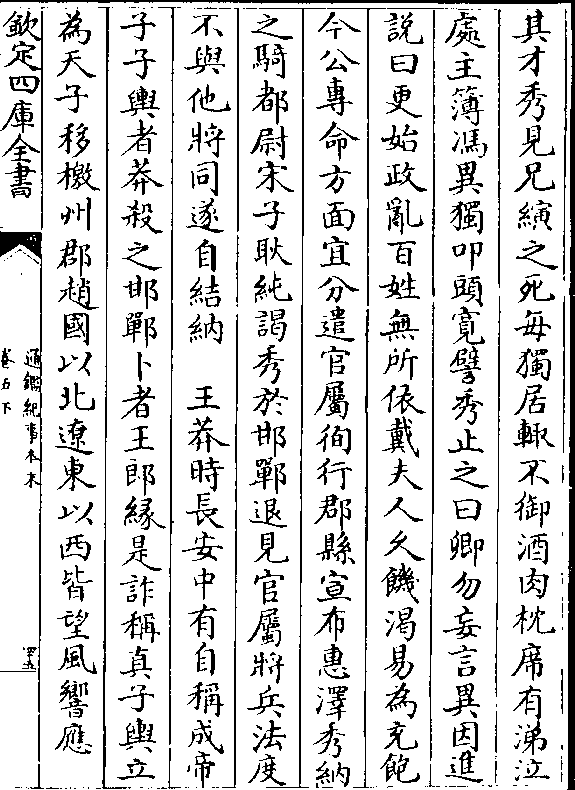 其才秀見兄縯之死每獨居輙不御酒肉枕席有涕泣
處主簿馮異獨叩頭寛譬秀止之曰卿勿妄言異因進
説曰更始政亂百姓無所依戴夫人久饑渴易為充飽
今公專命方面宜分遣官屬徇行郡縣宣布惠澤秀納
之騎都尉宋子耿純謁秀於邯鄲退見官屬將兵法度
不與他將同遂自結納　王莽時長安中有自稱成帝
子子輿者莽殺之邯鄲卜者王郎縁是詐稱真子輿立
為天子移檄州郡趙國以北遼東以西皆望風響應
欽定四庫全書
通鑑紀事本末
卷五下